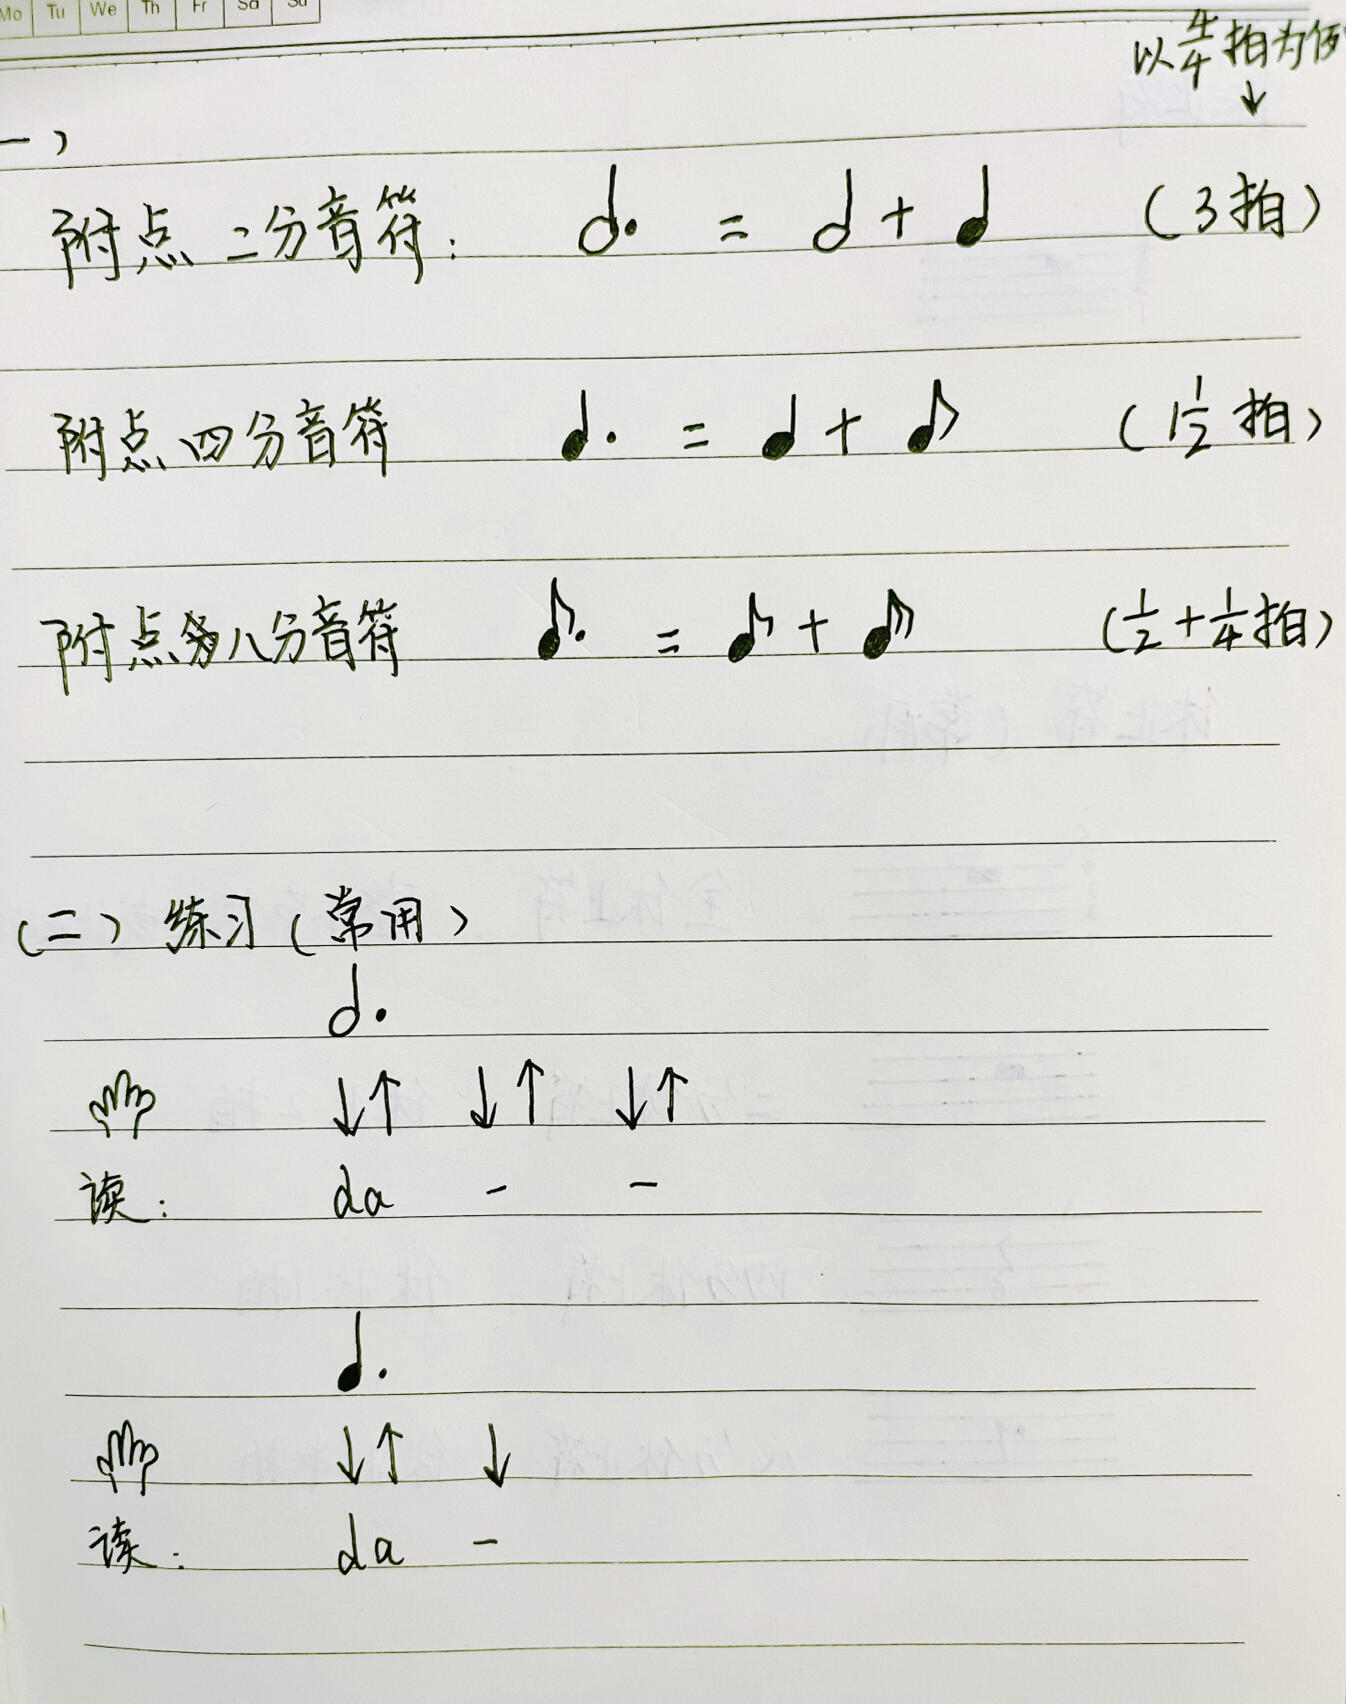 Mo Tu We Th Fr Sa Su
以4/4拍为例
↓
一)
附点二分音符: 𝅗𝅥. = 𝅗𝅥 + ♩ (3拍)
附点四分音符 ♩. = ♩ + ♪ (1 1/2 拍)
附点八分音符 ♪. = ♪ + 𝅘𝅥𝅯 (1/2 + 1/4 拍)
(二) 练习(常用)
𝅗𝅥.
↓↑ ↓↑ ↓↑
读: da - -
♩.
↓↑ ↓
读: da -